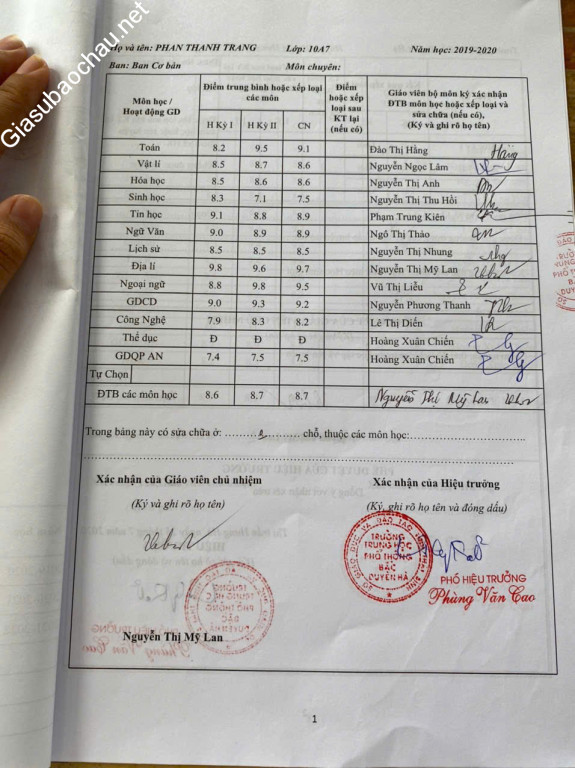 Giasubaochau.net
Họ và tên: PHAN THANH TRANG Lớp: 10A7 Năm học: 2019-2020
Ban: Ban Cơ bản Môn chuyên:
Môn học / Hoạt động GD Điểm trung bình hoặc xếp loại các môn Điểm hoặc xếp loại sau KT lại (nếu có) Giáo viên bộ môn ký xác nhận ĐTB môn học hoặc xếp loại và sửa chữa (nếu có), (Ký và ghi rõ họ tên)
H Kỳ I H Kỳ II CN
Toán 8.2 9.5 9.1 Đào Thị Hằng Hằng
Vật lí 8.5 8.7 8.6 Nguyễn Ngọc Lâm
Hóa học 8.5 8.6 8.6 Nguyễn Thị Anh
Sinh học 8.3 7.1 7.5 Nguyễn Thị Thu Hồi
Tin học 9.1 8.8 8.9 Phạm Trung Kiên
Ngữ Văn 9.0 8.9 8.9 Ngô Thị Thảo
Lịch sử 8.5 8.5 8.5 Nguyễn Thị Nhung
Địa lí 9.8 9.6 9.7 Nguyễn Thị Mỹ Lan
Ngoại ngữ 8.8 9.8 9.5 Vũ Thị Liễu
GDCD 9.0 9.3 9.2 Nguyễn Phương Thanh
Công Nghệ 7.9 8.3 8.2 Lê Thị Diến
Thể dục Đ Đ Đ Hoàng Xuân Chiến
GDQP AN 7.4 7.5 7.5 Hoàng Xuân Chiến
Tự Chọn
ĐTB các môn học 8.6 8.7 8.7 Nguyễn Thị Mỹ Lan
Trong bảng này có sửa chữa ở: ................ chỗ, thuộc các môn học:................
Xác nhận của Giáo viên chủ nhiệm
(Ký và ghi rõ họ tên)
Xác nhận của Hiệu trưởng
(Ký, ghi rõ họ tên và đóng dấu)
TRƯỜNG
TRUNG HỌC
PHỔ THÔNG
BẮC
DUYÊN HÀ
PHÓ HIỆU TRƯỞNG
Phùng Văn Cao
Nguyễn Thị Mỹ Lan
1